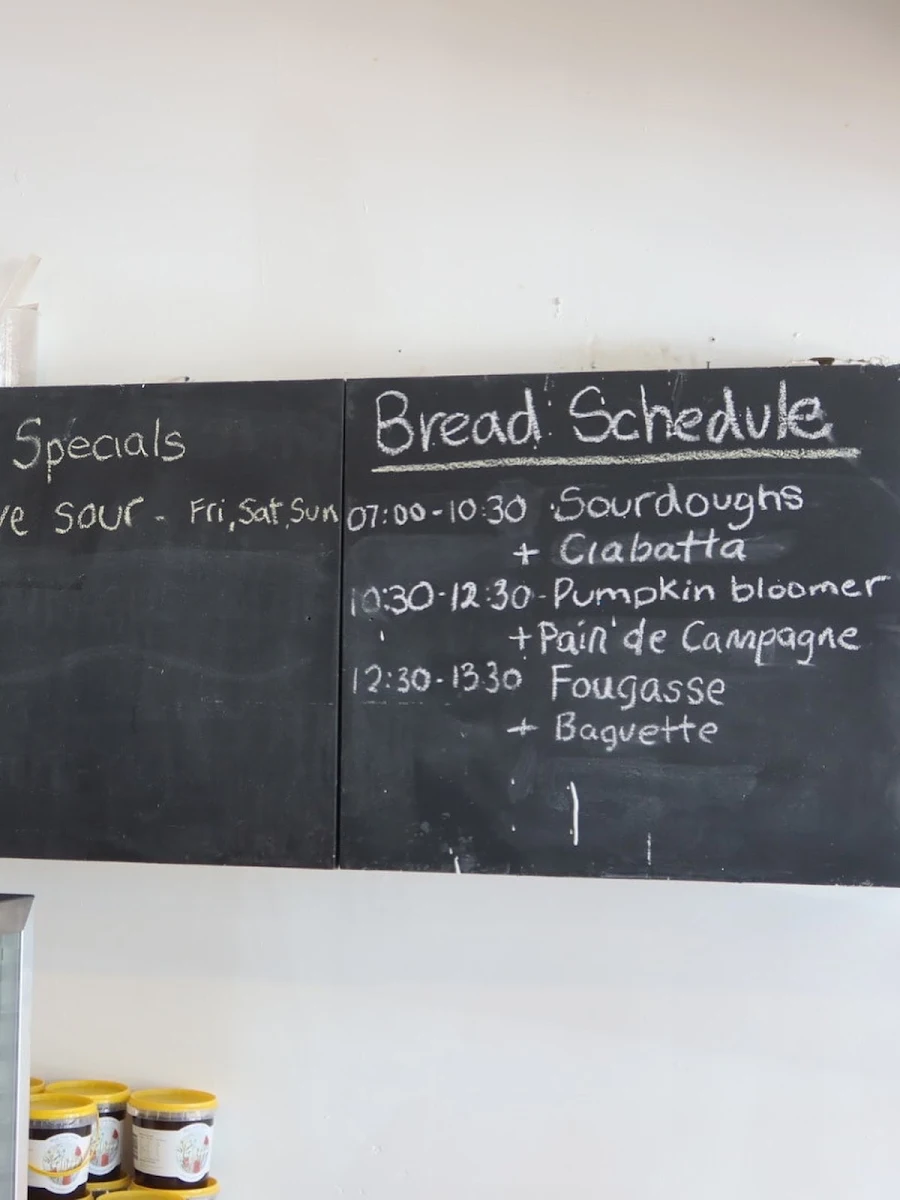 Specials
ve sour - Fri, Sat, Sun
Bread Schedule
07:00-10:30 Sourdoughs
+ Ciabatta
10:30-12:30-Pumpkin bloomer
+Pain de Campagne
12:30-1330 Fougasse
+ Baguette